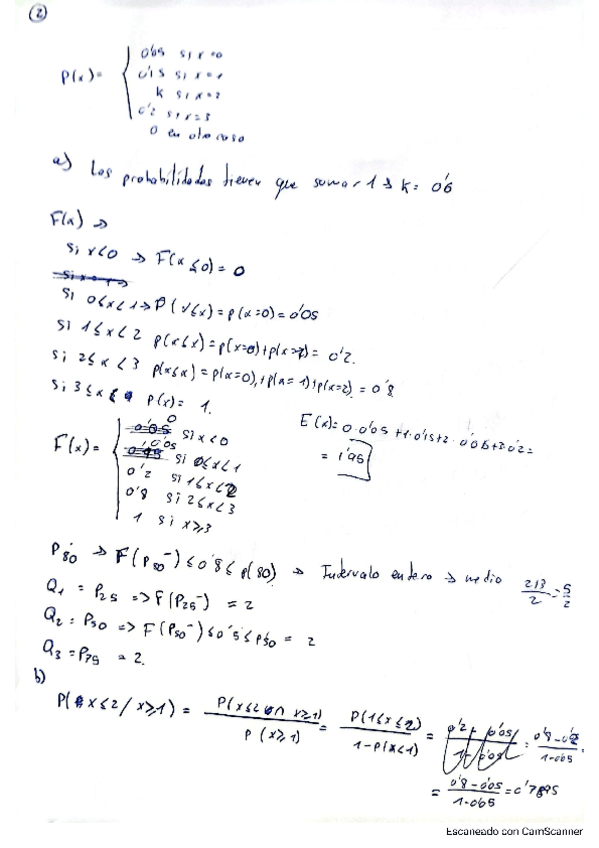 2
P(x)= { 0'05 si x=0
0'15 si x=1
k si x=2
0'2 si x=3
0 en otro caso
a) Las probabilidades tienen que sumar 1 → k= 0'6
F(x) →
Si x<0 → F(x≤0) = 0
Si 0≤x<1 → P(X≤x) = p(x=0)=0'05
Si 1≤x<2 p(x≤x) = p(x=0)+p(x=1) = 0'2.
Si 2≤x<3 p(x≤x) = p(x=0)+p(x=1)+p(x=2) = 0'8
Si 3≤x p(x) = 1.
E(x)= 0·0'05 +1·0'15+2·0'6+3·0'2=
= 1'95
F(x) = { 0 si x<0
0'05 si 0≤x<1
0'2 si 1≤x<2
0'8 si 2≤x<3
1 si x≥3
P80 → F(P80⁻) ≤ 0'8 ≤ p(80) → Intervalo entero → medio (2+3)/2 = 5/2
Q1 = P25 => F(P25⁻) = 2
Q2 = P50 => F(P50⁻) ≤ 0'5 ≤ P50 = 2
Q3 = P75 = 2.
b)
P(x≤2 / x≥1) = P(x≤2 ∩ x≥1) / P(x≥1) = P(1≤x≤2) / 1-P(x<1) =
= 0'8-0'05 / 1-0'05 = 0'7895
Escaneado con CamScanner